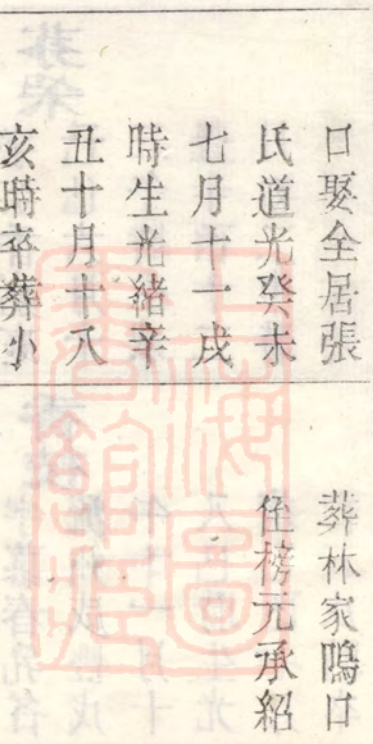 口娶全居張
氏道光癸未
七月十一戌
時生光緒辛
丑十月十八
亥時卒葬小
葬林家鴫口
侄榜元承紹
上海圖書館藏